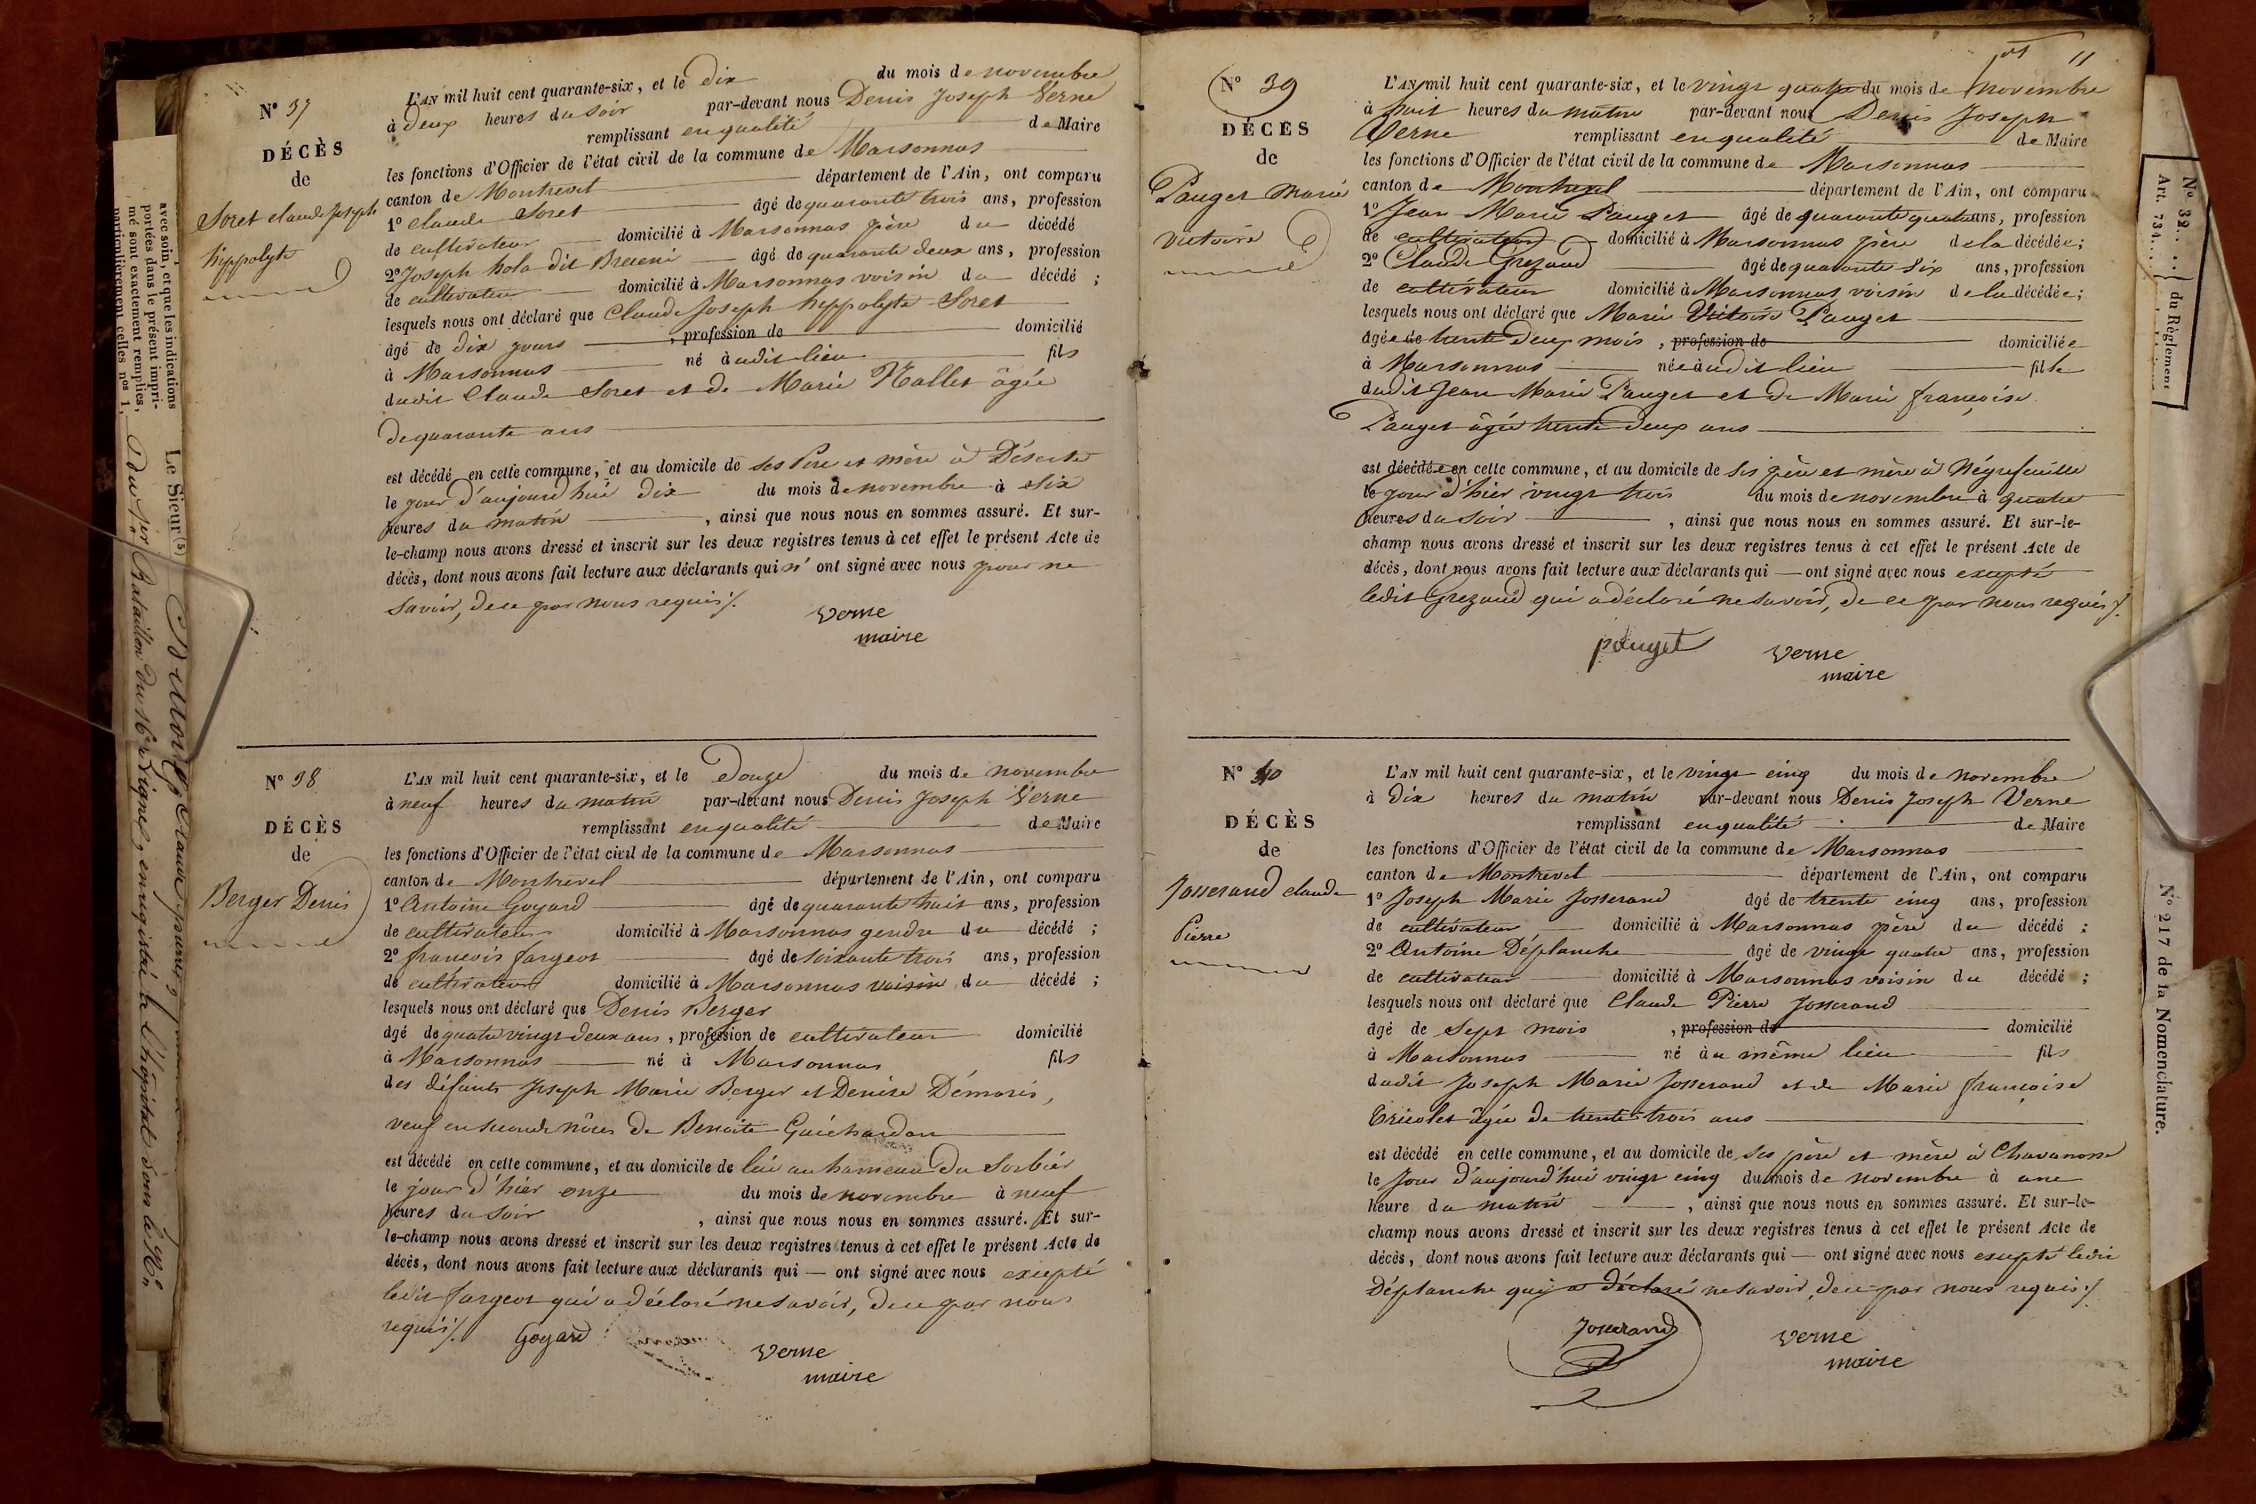 N° 37
DÉCÈS
de
Soret claude Joseph
hippolyte
L'AN mil huit cent quarante-six, et le dix du mois de novembre
à deux heures du soir par-devant nous Denis Joseph Verne
remplissant en qualité de Maire
les fonctions d'Officier de l'état civil de la commune de Marsonnas
canton de Montrevel département de l'Ain, ont comparu
1° Claude Soret âgé de quarante trois ans, profession
de cultivateur domicilié à Marsonnas père du décédé
2° Joseph hola dit âgé de quarante deux ans, profession
de cultivateur domicilié à Marsonnas voisin du décédé ;
lesquels nous ont déclaré que Claude Joseph hippolyte Soret
âgé de dix jours , profession de domicilié
à Marsonnas né audit lieu fils
dudit Claude Soret et de Marie Nallet âgée
de quarante ans
est décédé en cette commune, et au domicile de ses Père et mère à Déserte
le jour d'aujourd'hui dix du mois de novembre à six
heures du matin , ainsi que nous nous en sommes assuré. Et sur-
le-champ nous avons dressé et inscrit sur les deux registres tenus à cet effet le présent Acte de
décès, dont nous avons fait lecture aux déclarants qui n' ont signé avec nous pour ne
savoir, de ce par nous requis ./.
Verne
maire
N° 38
DÉCÈS
de
Berger Denis
L'AN mil huit cent quarante-six, et le Douze du mois de novembre
à neuf heures du matin par-devant nous Denis Joseph Verne
remplissant en qualité de Maire
les fonctions d'Officier de l'état civil de la commune de Marsonnas
canton de Montrevel département de l'Ain, ont comparu
1° Antoine Goyard âgé de quarante huit ans, profession
de cultivateur domicilié à Marsonnas gendre du décédé ;
2° françois fargeot âgé de soixante trois ans, profession
de cultivateur domicilié à Marsonnas voisin du décédé ;
lesquels nous ont déclaré que Denis Berger
âgé de quatre vingt deux ans, profession de cultivateur domicilié
à Marsonnas né à Marsonnas fils
des défunts Joseph Marie Berger et Denise Démoris,
veuf en seconde nôces de Benoite Guichardon
est décédé en cette commune, et au domicile de lui au hameau du Sorbier
le jour d'hier onze du mois de novembre à neuf
heures du soir , ainsi que nous nous en sommes assuré. Et sur-
le-champ nous avons dressé et inscrit sur les deux registres tenus à cet effet le présent Acte de
décès, dont nous avons fait lecture aux déclarants qui — ont signé avec nous excepté
ledit fargeot qui a déclaré ne savoir, de ce par nous
requis ./. Goyard
Verne
maire
11
N° 39
DÉCÈS
de
Pauget Marie
victoire
L'AN mil huit cent quarante-six, et le vingt quatre du mois de novembre
à huit heures du matin par-devant nous Denis Joseph
Verne remplissant en qualité de Maire
les fonctions d'Officier de l'état civil de la commune de Marsonnas
canton de Montrevel département de l'Ain, ont comparu
1° Jean Marie Pauget âgé de quarante quatre ans, profession
de cultivateur domicilié à Marsonnas père de la décédée ;
2° Claude Grezaud âgé de quarante six ans, profession
de cultivateur domicilié à Marsonnas voisin de la décédée ;
lesquels nous ont déclaré que Marie Victoire Pauget
âgée de trente deux mois , profession de domiciliée
à Marsonnas née audit lieu fille
dudit Jean Marie Pauget et de Marie françoise
Pauget âgée trente deux ans
est décédée en cette commune, et au domicile de ses père et mère à Négrefeuille
le jour d'hier vingt trois du mois de novembre à quatre
heures du soir , ainsi que nous nous en sommes assuré. Et sur-le-
champ nous avons dressé et inscrit sur les deux registres tenus à cet effet le présent Acte de
décès, dont nous avons fait lecture aux déclarants qui — ont signé avec nous excepté
ledit Grezaud qui a déclaré ne savoir, de ce par nous requis ./.
pauget
Verne
maire
N° 40
DÉCÈS
de
Josserand claude
Pierre
L'AN mil huit cent quarante-six, et le vingt cinq du mois de novembre
à Dix heures du matin par-devant nous Denis Joseph Verne
remplissant en qualité de Maire
les fonctions d'Officier de l'état civil de la commune de Marsonnas
canton de Montrevel département de l'Ain, ont comparu
1° Joseph Marie Josserand âgé de trente cinq ans, profession
de cultivateur domicilié à Marsonnas père du décédé ;
2° Antoine Déplanche âgé de vingt quatre ans, profession
de cultivateur domicilié à Marsonnas voisin du décédé ;
lesquels nous ont déclaré que Claude Pierre Josserand
âgé de Sept mois , profession de domicilié
à Marsonnas né au même lieu fils
dudit Joseph Marie Josserand et de Marie françoise
Tricolet âgée de trente-trois ans
est décédé en cette commune, et au domicile de ses père et mère à Chavanosse
le Jour d'aujourd'hui vingt cinq du mois de novembre à une
heure du matin , ainsi que nous nous en sommes assuré. Et sur-le-
champ nous avons dressé et inscrit sur les deux registres tenus à cet effet le présent Acte de
décès, dont nous avons fait lecture aux déclarants qui — ont signé avec nous excepté ledit
Déplanche qui a déclaré ne savoir, de ce par nous requis ./.
Josserand
Verne
maire
avec soin, et que les indications
portées dans le présent impri-
mé sont exactement remplies,
particulièrement celles nos 1,
Le Sieur (3)
N° 32..
Art. 734..
du Règlement
N° 217 de la Nomenclature.